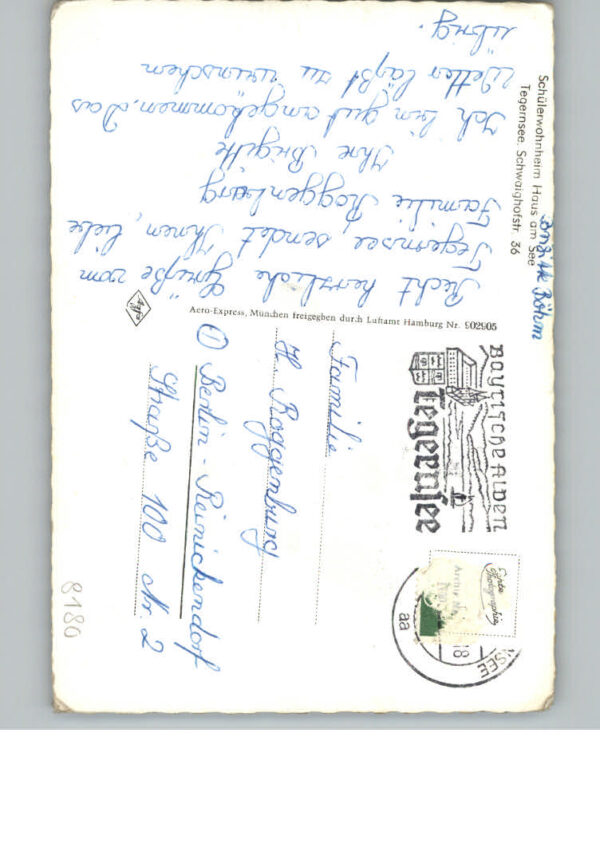 Schülerwohnheim Haus am See
Tegernsee, Schwaighofstr. 36
Brigitte Böhm
Recht herzliche Grüße vom
Tegernsee sendet Ihnen, liebe
Familie Roggenburg
Ihre Brigitte
Ich bin gut angekommen. Das
Wetter läßt zu wünschen
übrig.
Agfa
Aero-Express, München freigegeben durch Luftamt Hamburg Nr. 902905
Bayrische Alpen
Tegernsee
Echte
Photographie
Archiv
NSEE
18
aa
Familie
H. Roggenburg
① Berlin - Reinickendorf
Straße 100 Nr. 2
8180